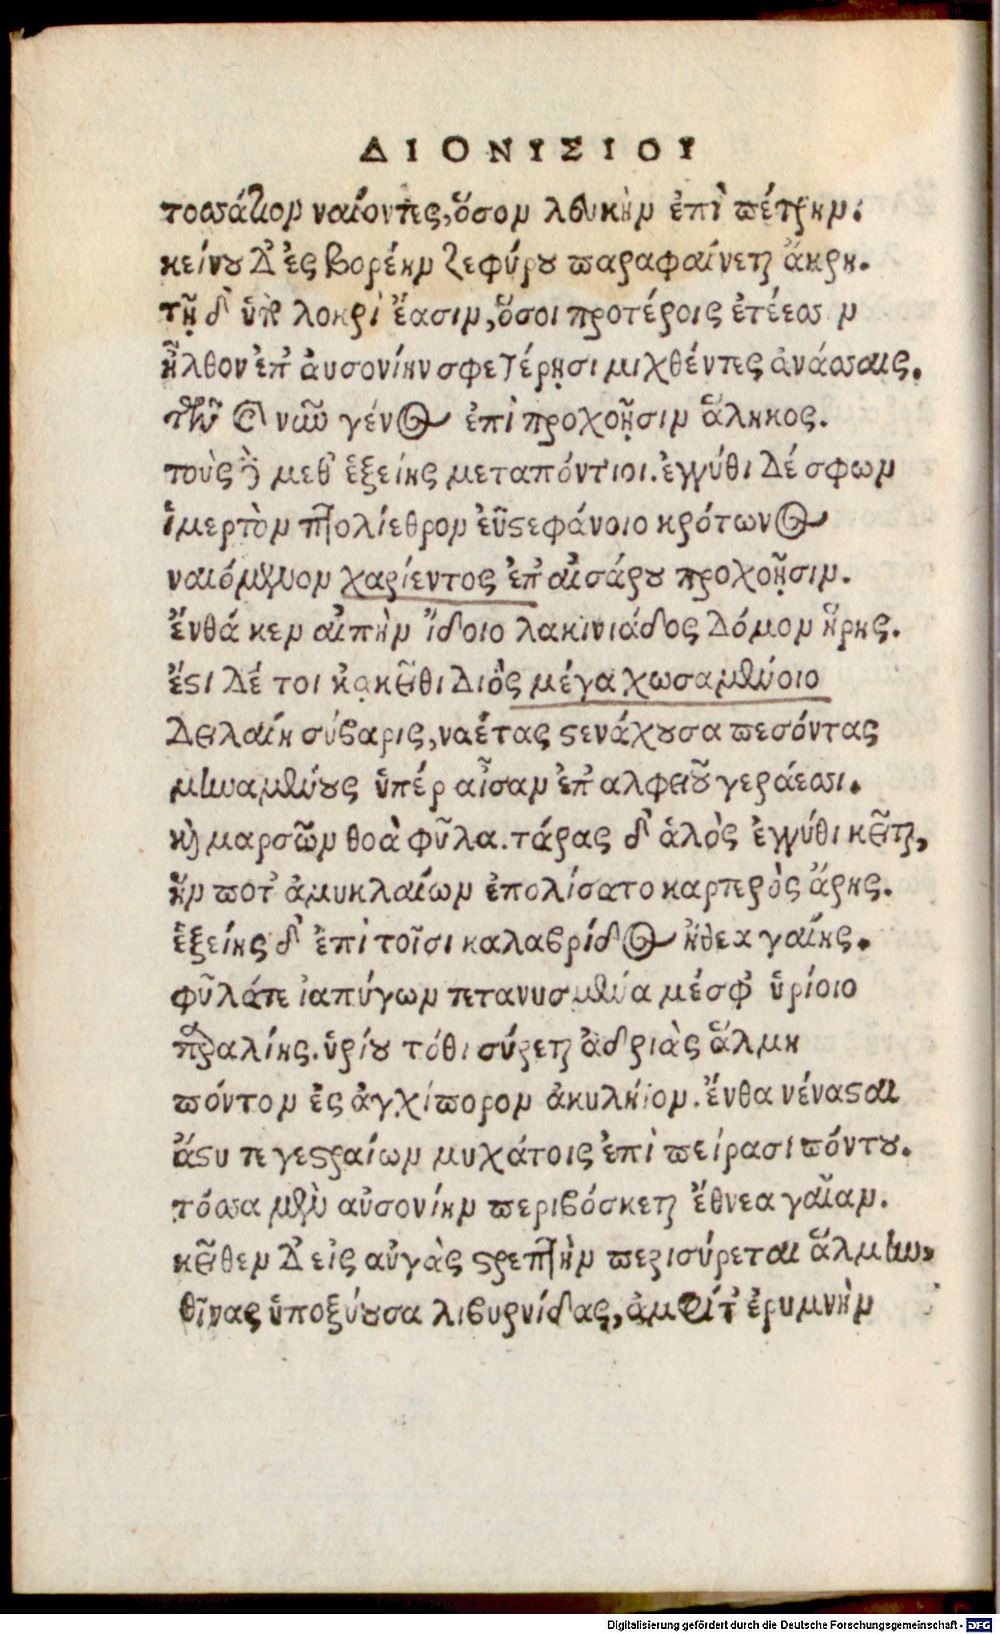 ΔΙΟΝΥΣΙΟΥ
τοσσάτιον ναίοντες, ὅσον λευκὴν ἐπὶ πέτρην.
κείνου δ' ἐς βορέην ζεφύρου παραφαίνεται ἄκρη.
τῇ δ' ὕπο λοκροὶ ἔασιν, ὅσοι προτέροις ἐτέεσσιν
ἦλθον ἐπ' αὐσονίην σφετέρῃσι μιχθέντες ἀνάσσαις.
τῶν καὶ νῦν γένος ἐπὶ προχοῇσιν ἅληκος.
τοὺς δὲ μεθ' ἑξείης μεταπόντιοι. ἐγγύθι δέ σφων
ἱμερτὸν πτολίεθρον ἐϋστεφάνοιο κρότωνος
ναιόμενον χαρίεντος ἐπ' αἰσάρου προχοῇσιν.
ἔνθά κεν αἰπὴν ἴδοιο λακινιάδος δόμον ἥρης.
ἔστι δέ τοι κἀκεῖθι διὸς μέγα χωσαμένοιο
δειλαίη σύβαρις, ναέτας στενάχουσα πεσόντας
μηναμένους ὑπέρ αἶσαν ἐπ' αλφειοῦ γεράεσσι.
καὶ μαρσῶν θοὰ φῦλα. τάρας δ' ἁλὸς ἐγγύθι κεῖται,
ἥν ποτ' ἀμυκλαίων ἐπολίσατο καρτερὸς ἄρης.
ἑξείης δ' ἐπὶ τοῖσι καλαβρίδος ἤθεα γαίης.
φῦλά τε ἰαπύγων τετανυσμένα μέσφ' ὑρίοιο
παραλίης. ὑρίου τόθι σύρεται ἀδριὰς ἅλμη
πόντον ἐς ἀγχίπορον ἀκυλήϊον. ἔνθα νέναςαι
ἄστυ τεγεστραίων μυχάτοις ἐπὶ πείρασι πόντου.
τόσσα μὲν αὐσονίην περιβόσκεται ἔθνεα γαῖαν.
κεῖθεν δ' εἰς αὐγὰς στρεπτὴν περισύρεται ἅλμην
θῖνας ὑποξύουσα λιβυρνίδας, ἀμφίτ' ἐρυμνὴν
Digitalisierung gefördert durch die Deutsche Forschungsgemeinschaft - DFG